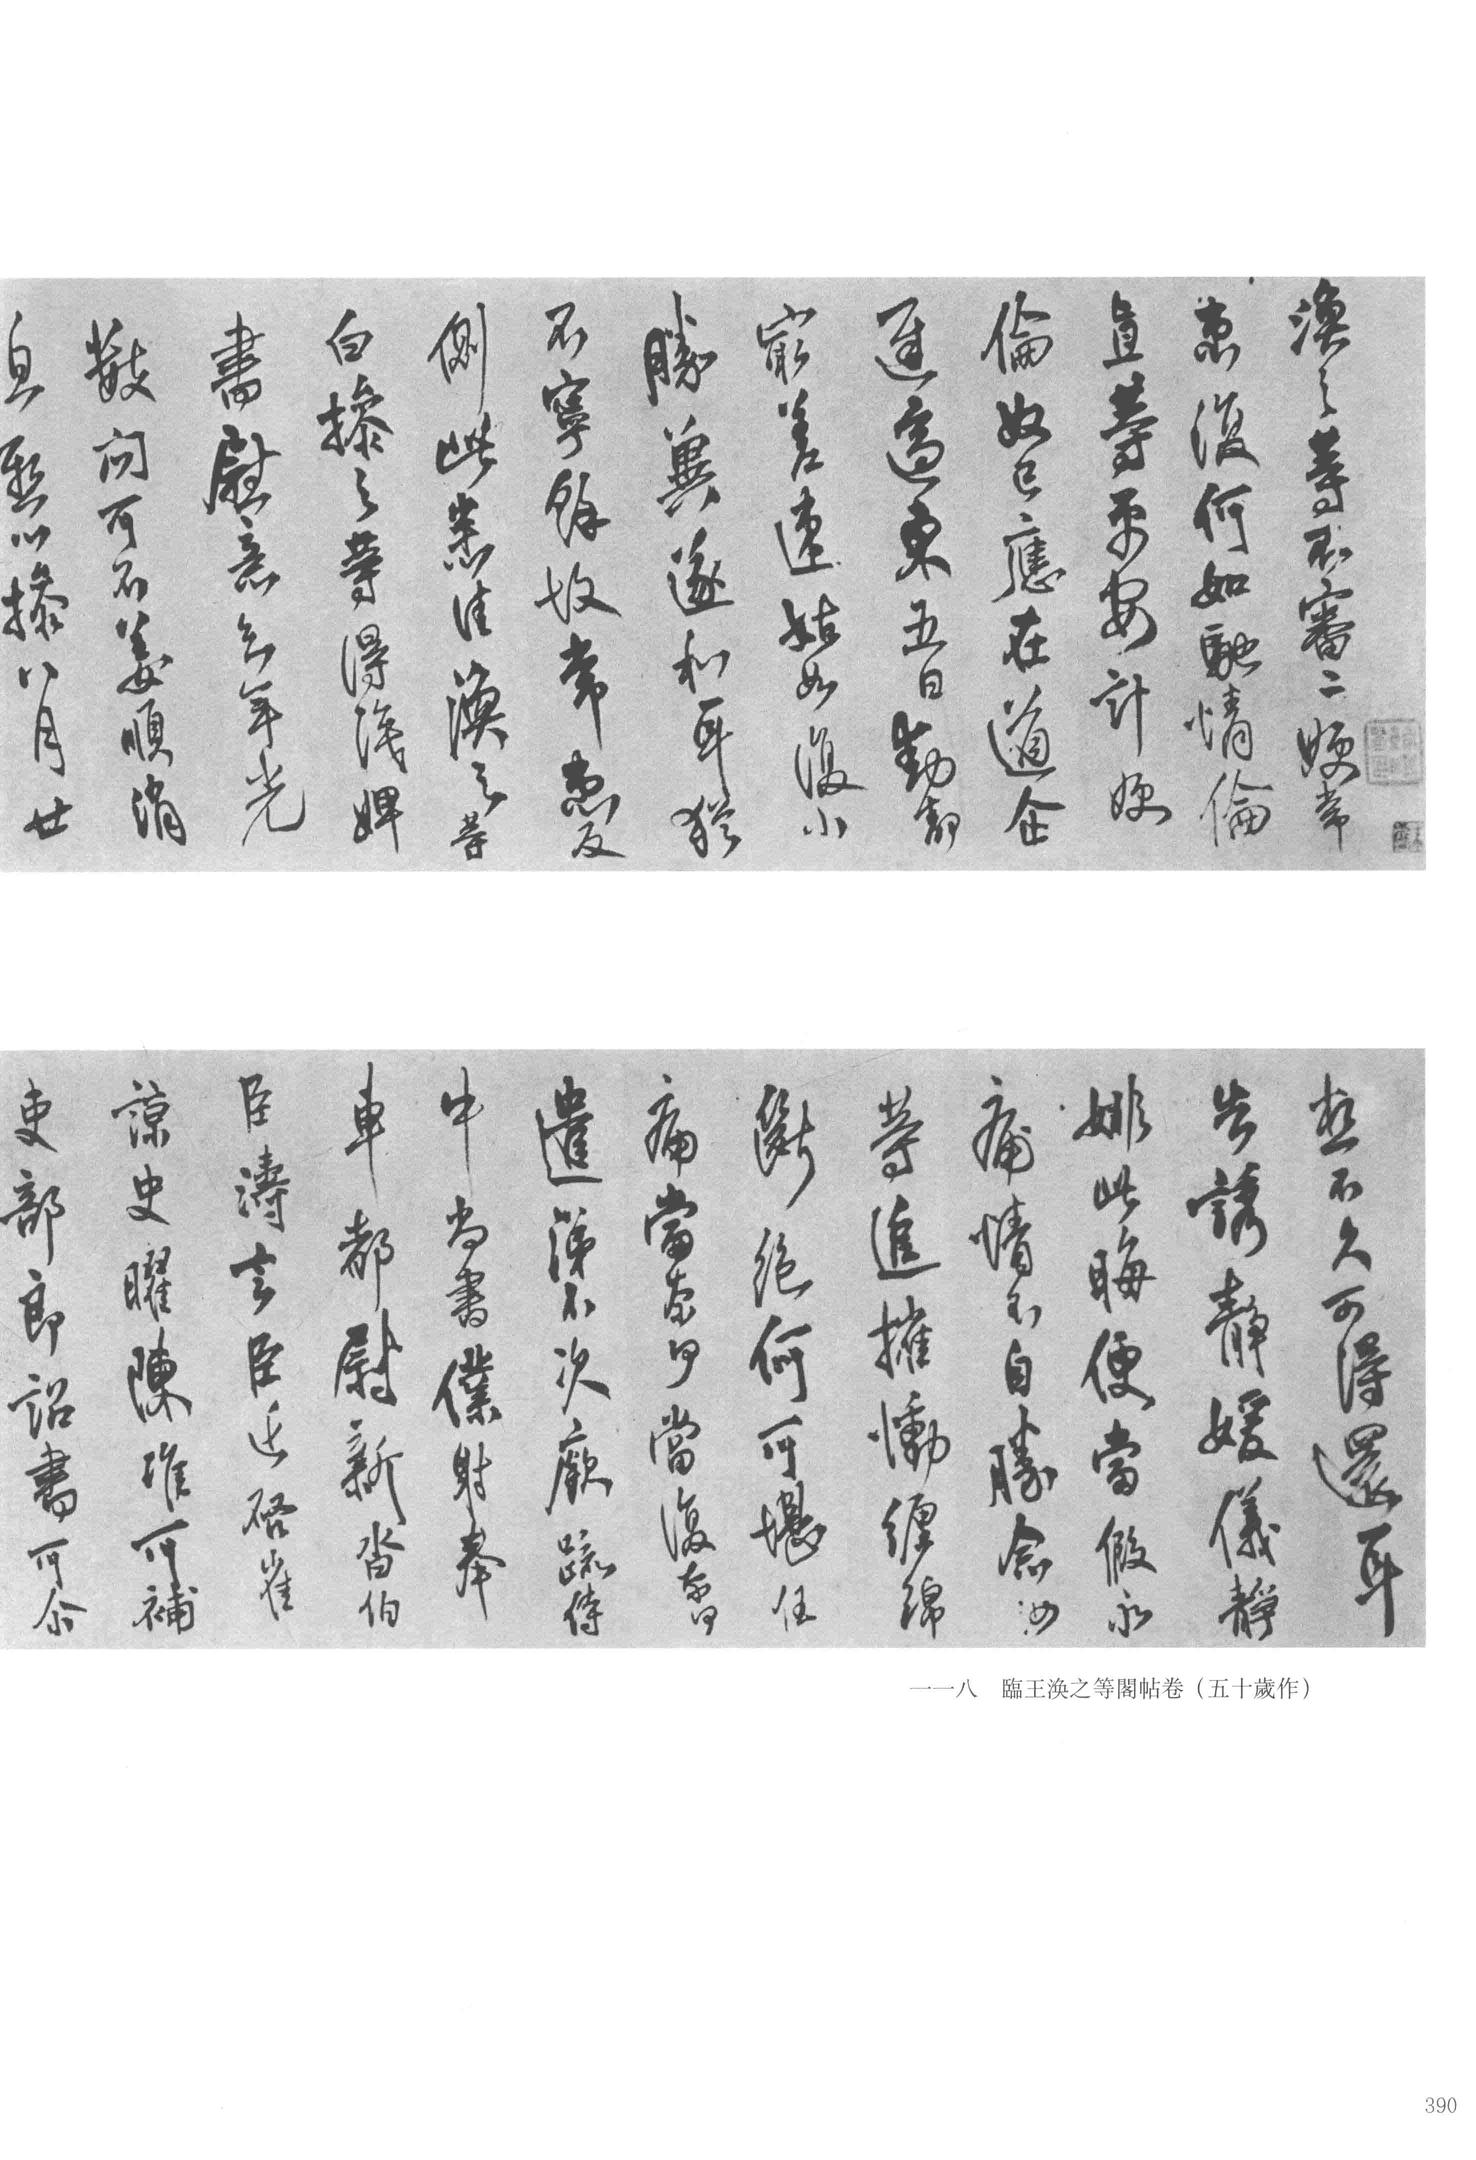 渙之等不審二嫂常
患復何如馳情倫
直等平安計嫂
倫奴已應在道企
遲適東五日動靜
宕差速姑如復小
勝冀遂和耳猶
不寧餘故常患反
側此悉佳渙之等
白操之等得識婢
書慰意去年光
數問可不姜順消
息懸心操八月廿
想不久可得還耳
告誘靜媛儀靜
姚此晦便當假永
痛情不自勝念汝
等追摧慟纏綿
斷絕何可堪任
痛當奈何當復奈
遣涕不次廞疏侍
中尚書僕射奉
車都尉新沓伯
臣濤言臣近啓崔
諒史曜陳準可補
吏部郎詔書可尒
一一八　臨王渙之等閣帖卷（五十歲作）
390